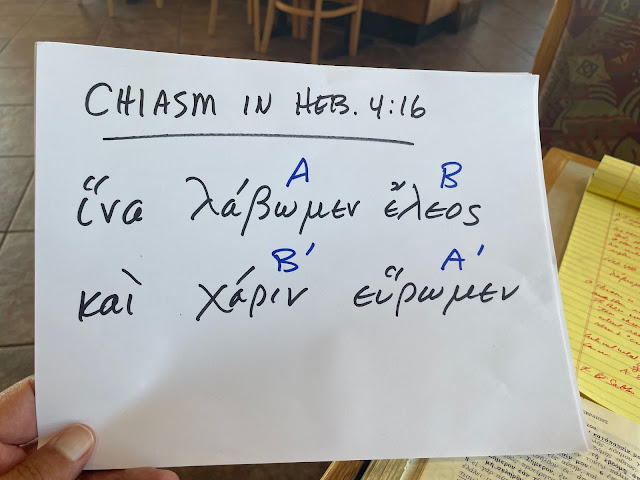 CHIASM IN HEB. 4:16
A B
ἵνα λάβωμεν ἔλεος
B′ A′
καὶ χάριν εὕρωμεν